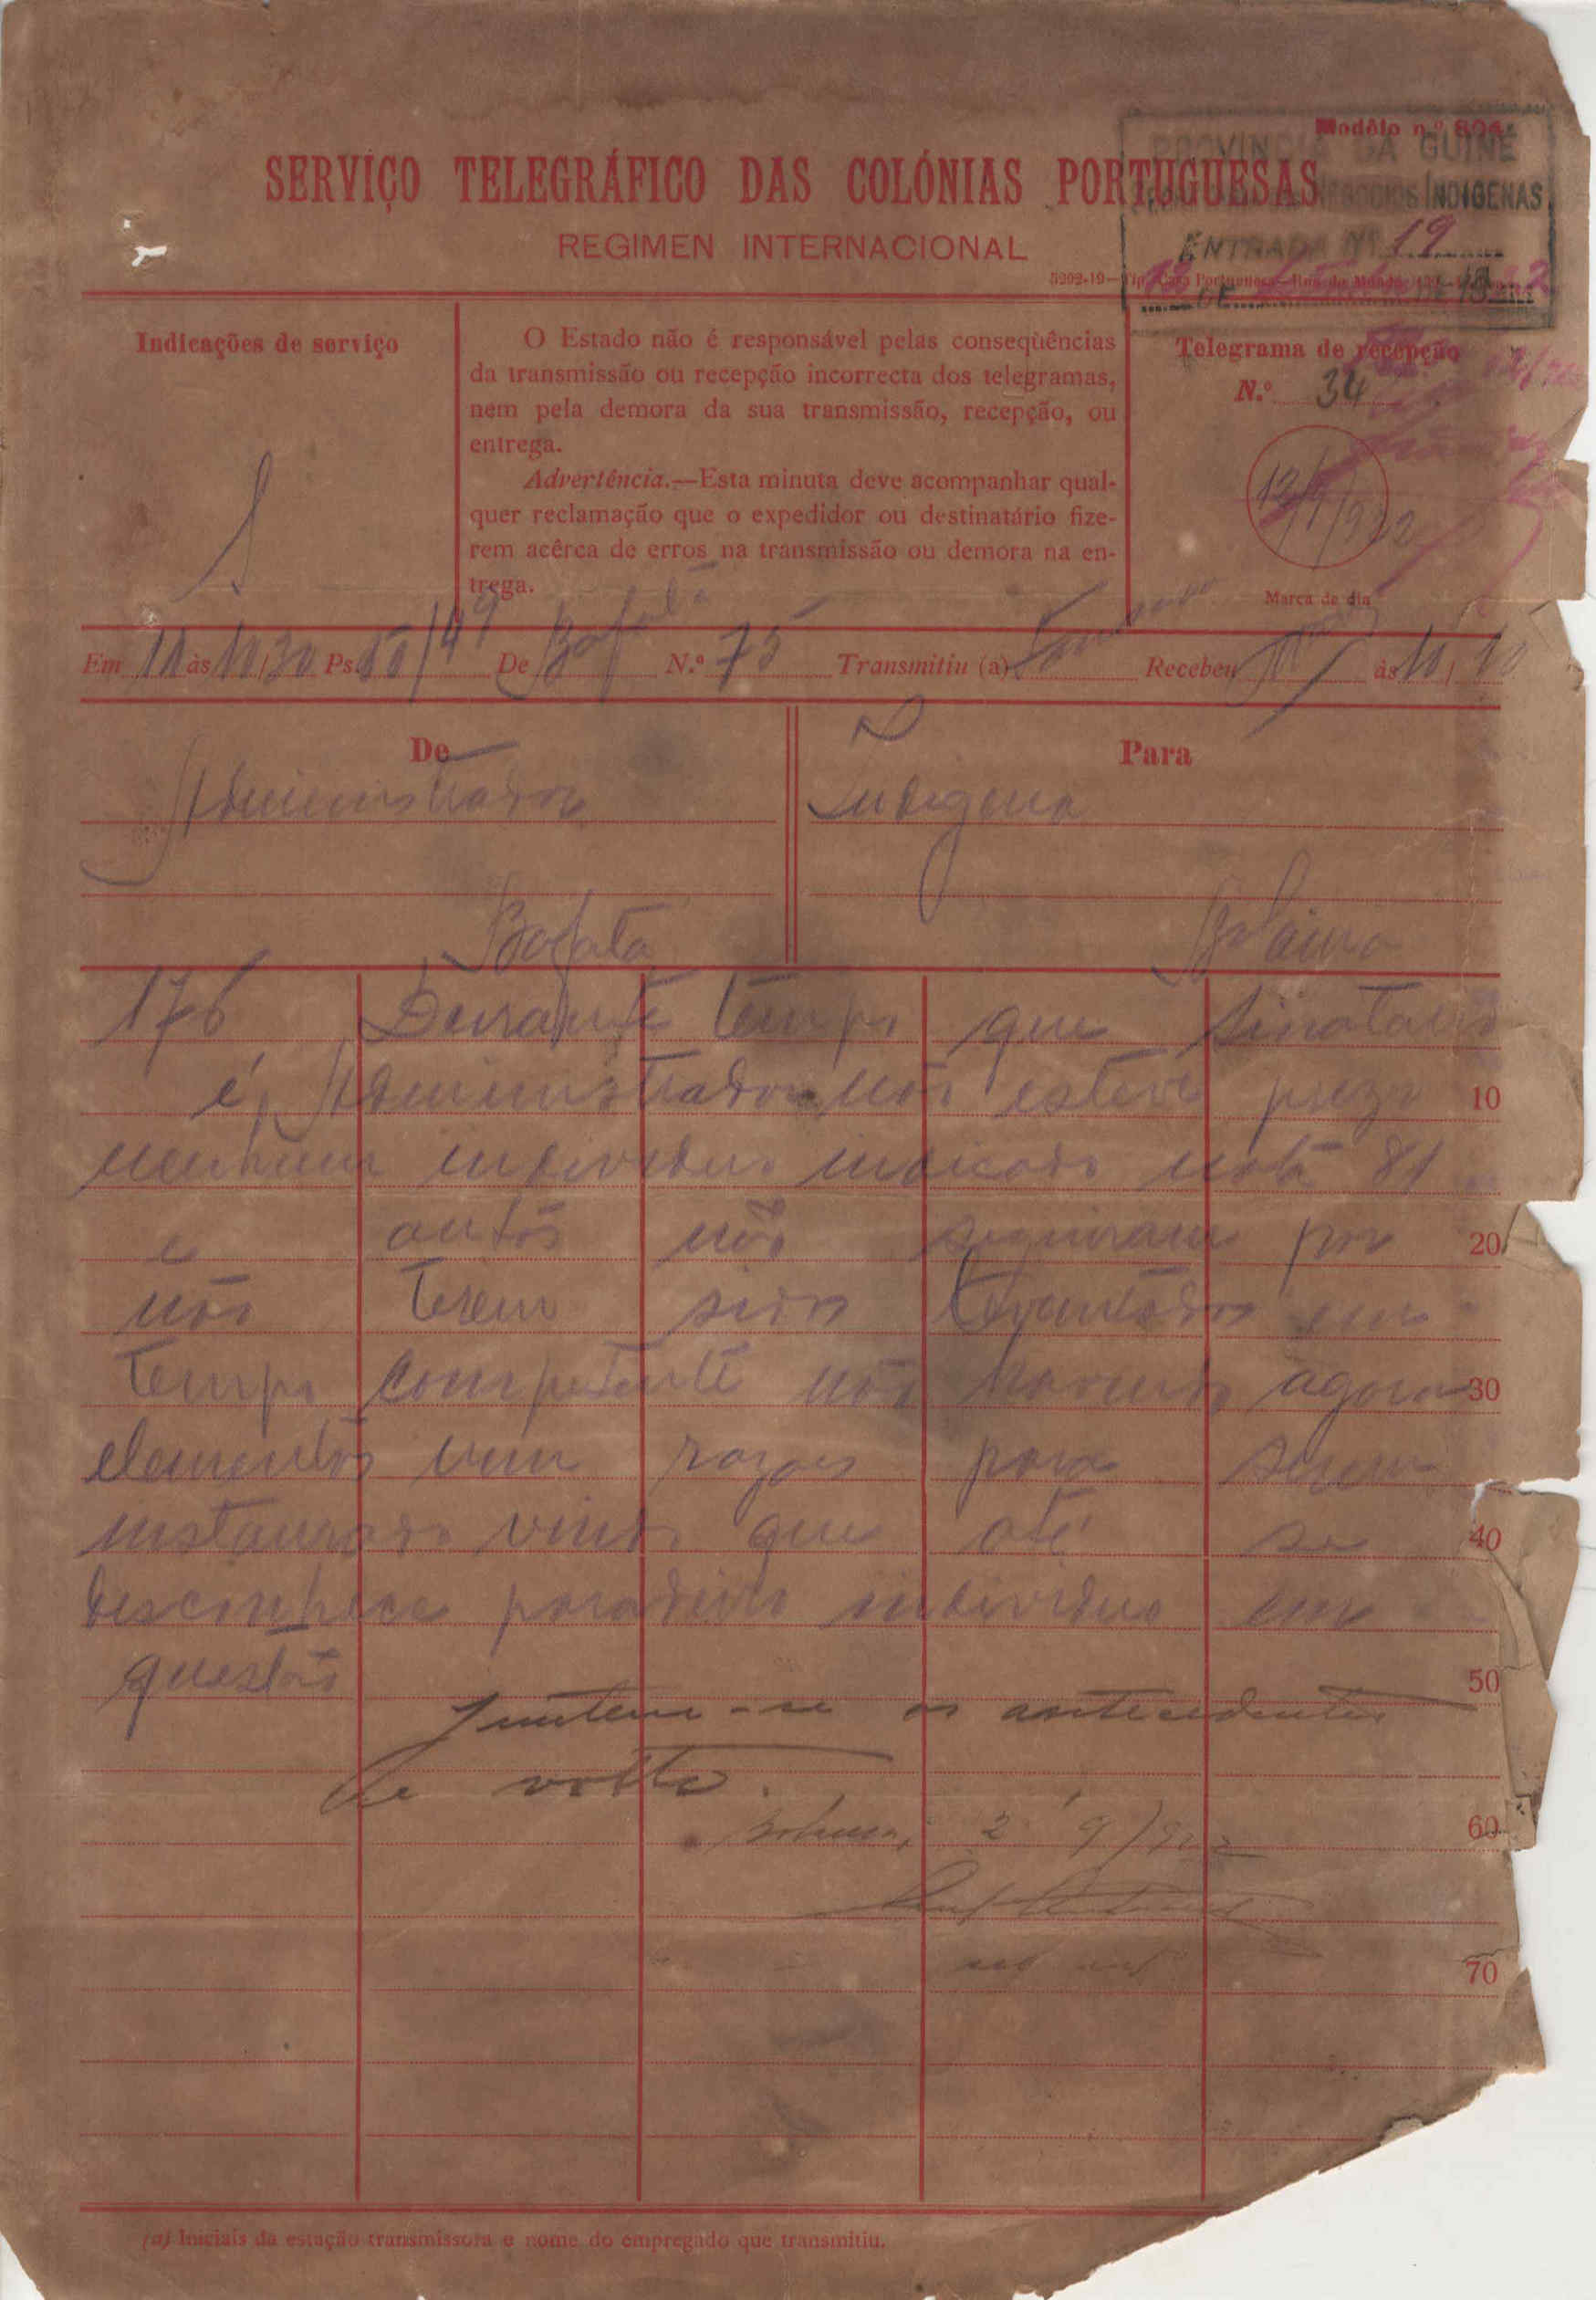 Modêlo n.º 804
PROVINCIA DA GUINÉ
NEGOCIOS INDIGENAS
ENTRADA Nº 19
SERVIÇO TELEGRÁFICO DAS COLÓNIAS PORTUGUESAS
REGIMEN INTERNACIONAL
Indicações de serviço
S
O Estado não é responsável pelas conseqùências
da transmissão ou recepção incorrecta dos telegramas,
nem pela demora da sua transmissão, recepção, ou
entrega.
Advertência.—Esta minuta deve acompanhar qual-
quer reclamação que o expedidor ou destinatário fize-
rem acêrca de erros na transmissão ou demora na en-
trega.
Telegrama de recepção
N.º 34
12/9/922
Marca de dia
Em 11 às 10/30 Ps. 50/49 De Bafatá N.º 75 Transmitiu (a) Recebeu às 11/10
De
Administrador
Bafata
Para
Indigena
Bolama
176 Durante tempo que
é Administrador não esteve prezo
nenhum individuo indicado nota 81 10
e autos não seguiram por 20
não terem sido levantados em
tempo competente não havendo agora 30
elementos nem razões para serem
instaurados visto que até se 40
desconhece paradeiro individuo em
questão 50
Juntem-se os antecedentes
e volte.
Bolama, 2 9/922
60
70
(a) Iniciais da estação transmissora e nome do empregado que transmitiu.